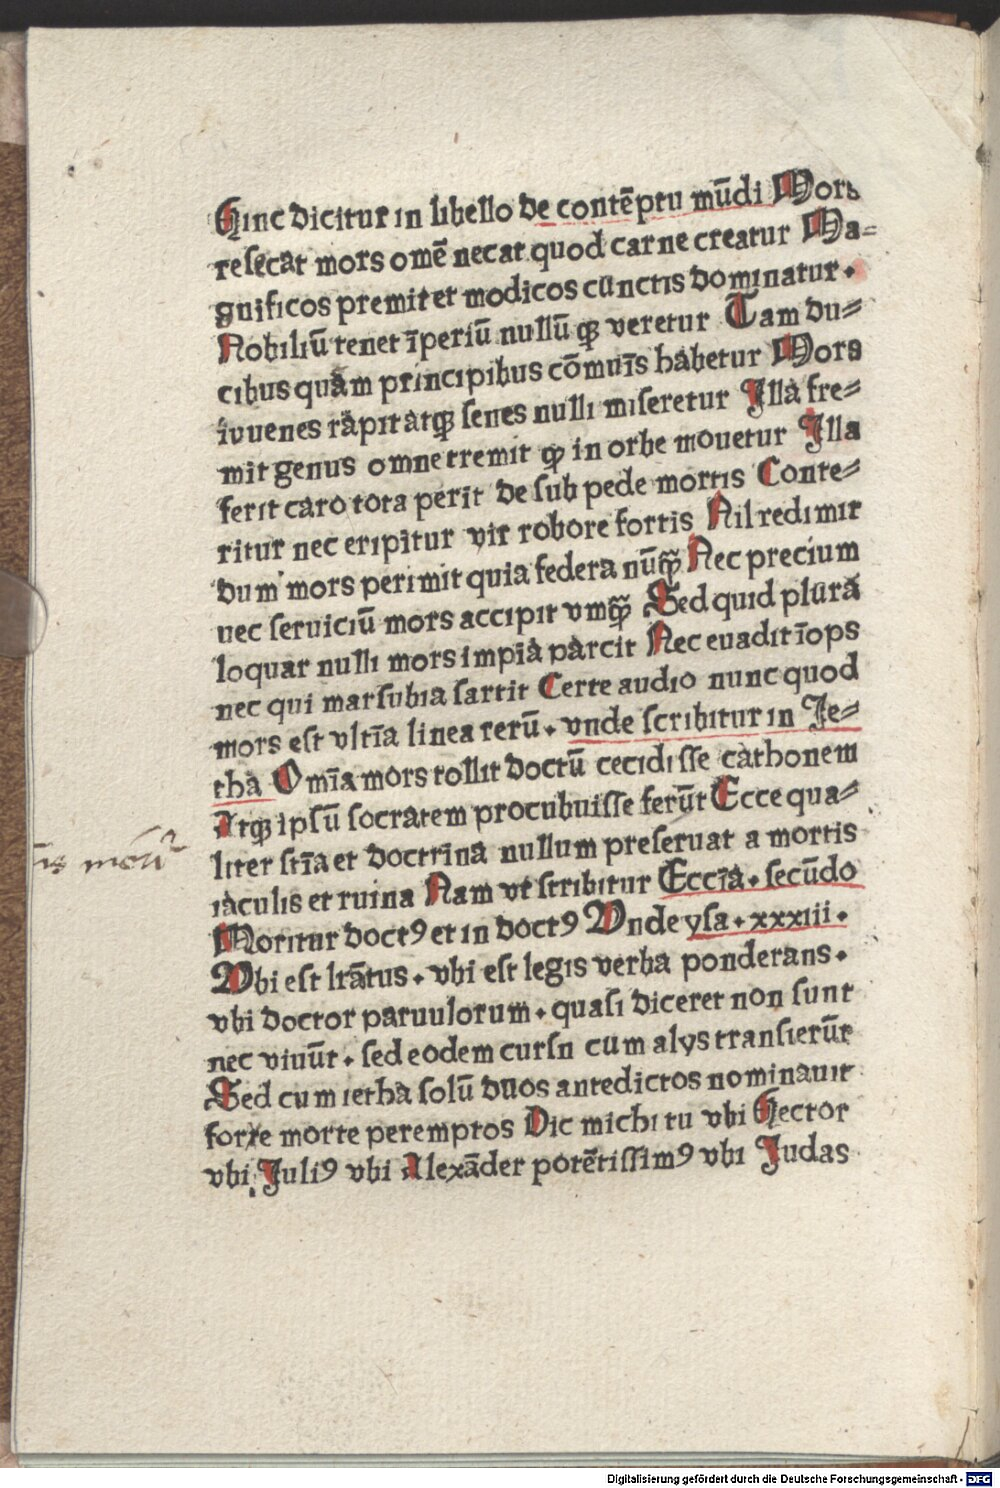 Hinc dicitur in libello de contēptu mūdi Mors
resecat mors omē necat quod carne creatur Ma=
gnificos premit et modicos cunctis dominatur.
Nobiliū tenet īperiū nullū qꝫ veretur Tam du=
cibus quam principibus cōmuīs habetur Mors
iuuenes rapit atqꝫ senes nulli miseretur Illa fre=
mit genus omne tremit ꝙ in orbe mouetur Illa
ferit caro tota perit de sub pede mortis Conte=
ritur nec eripitur vir robore fortis Nil redimit
dum mors perimit quia federa nūqꝫ Nec precium
nec seruiciū mors accipit vmqꝫ Sed quid plura
loquar nulli mors impia parcit Nec euadit īops
nec qui marsubia sartit Certe audio nunc quod
mors est vltīa linea rerū. vnde scribitur in Je=
tha Omīa mors tollit doctū cecidisse cathonem
Atqꝫ ipsū socratem procubuisse ferūt Ecce qua=
liter stīa et doctrina nullum preseruat a mortis
iaculis et ruina Nam vt stribitur Eccīa. secūdo
Moritur doctꝯ et in doctꝯ Vnde ysa. xxxiii.
Vbi est lrātus. vbi est legis verba ponderans.
vbi doctor paruulorum. quasi diceret non sunt
nec viuūt. sed eodem cursn cum alys transierūt
Sed cum ietha solū duos antedictos nominauit
forte morte peremptos Dic michi tu vbi Hector
vbi Juliꝯ vbi Alexāder potētissimꝯ vbi Judas
Digitalisierung gefördert durch die Deutsche Forschungsgemeinschaft - DFG